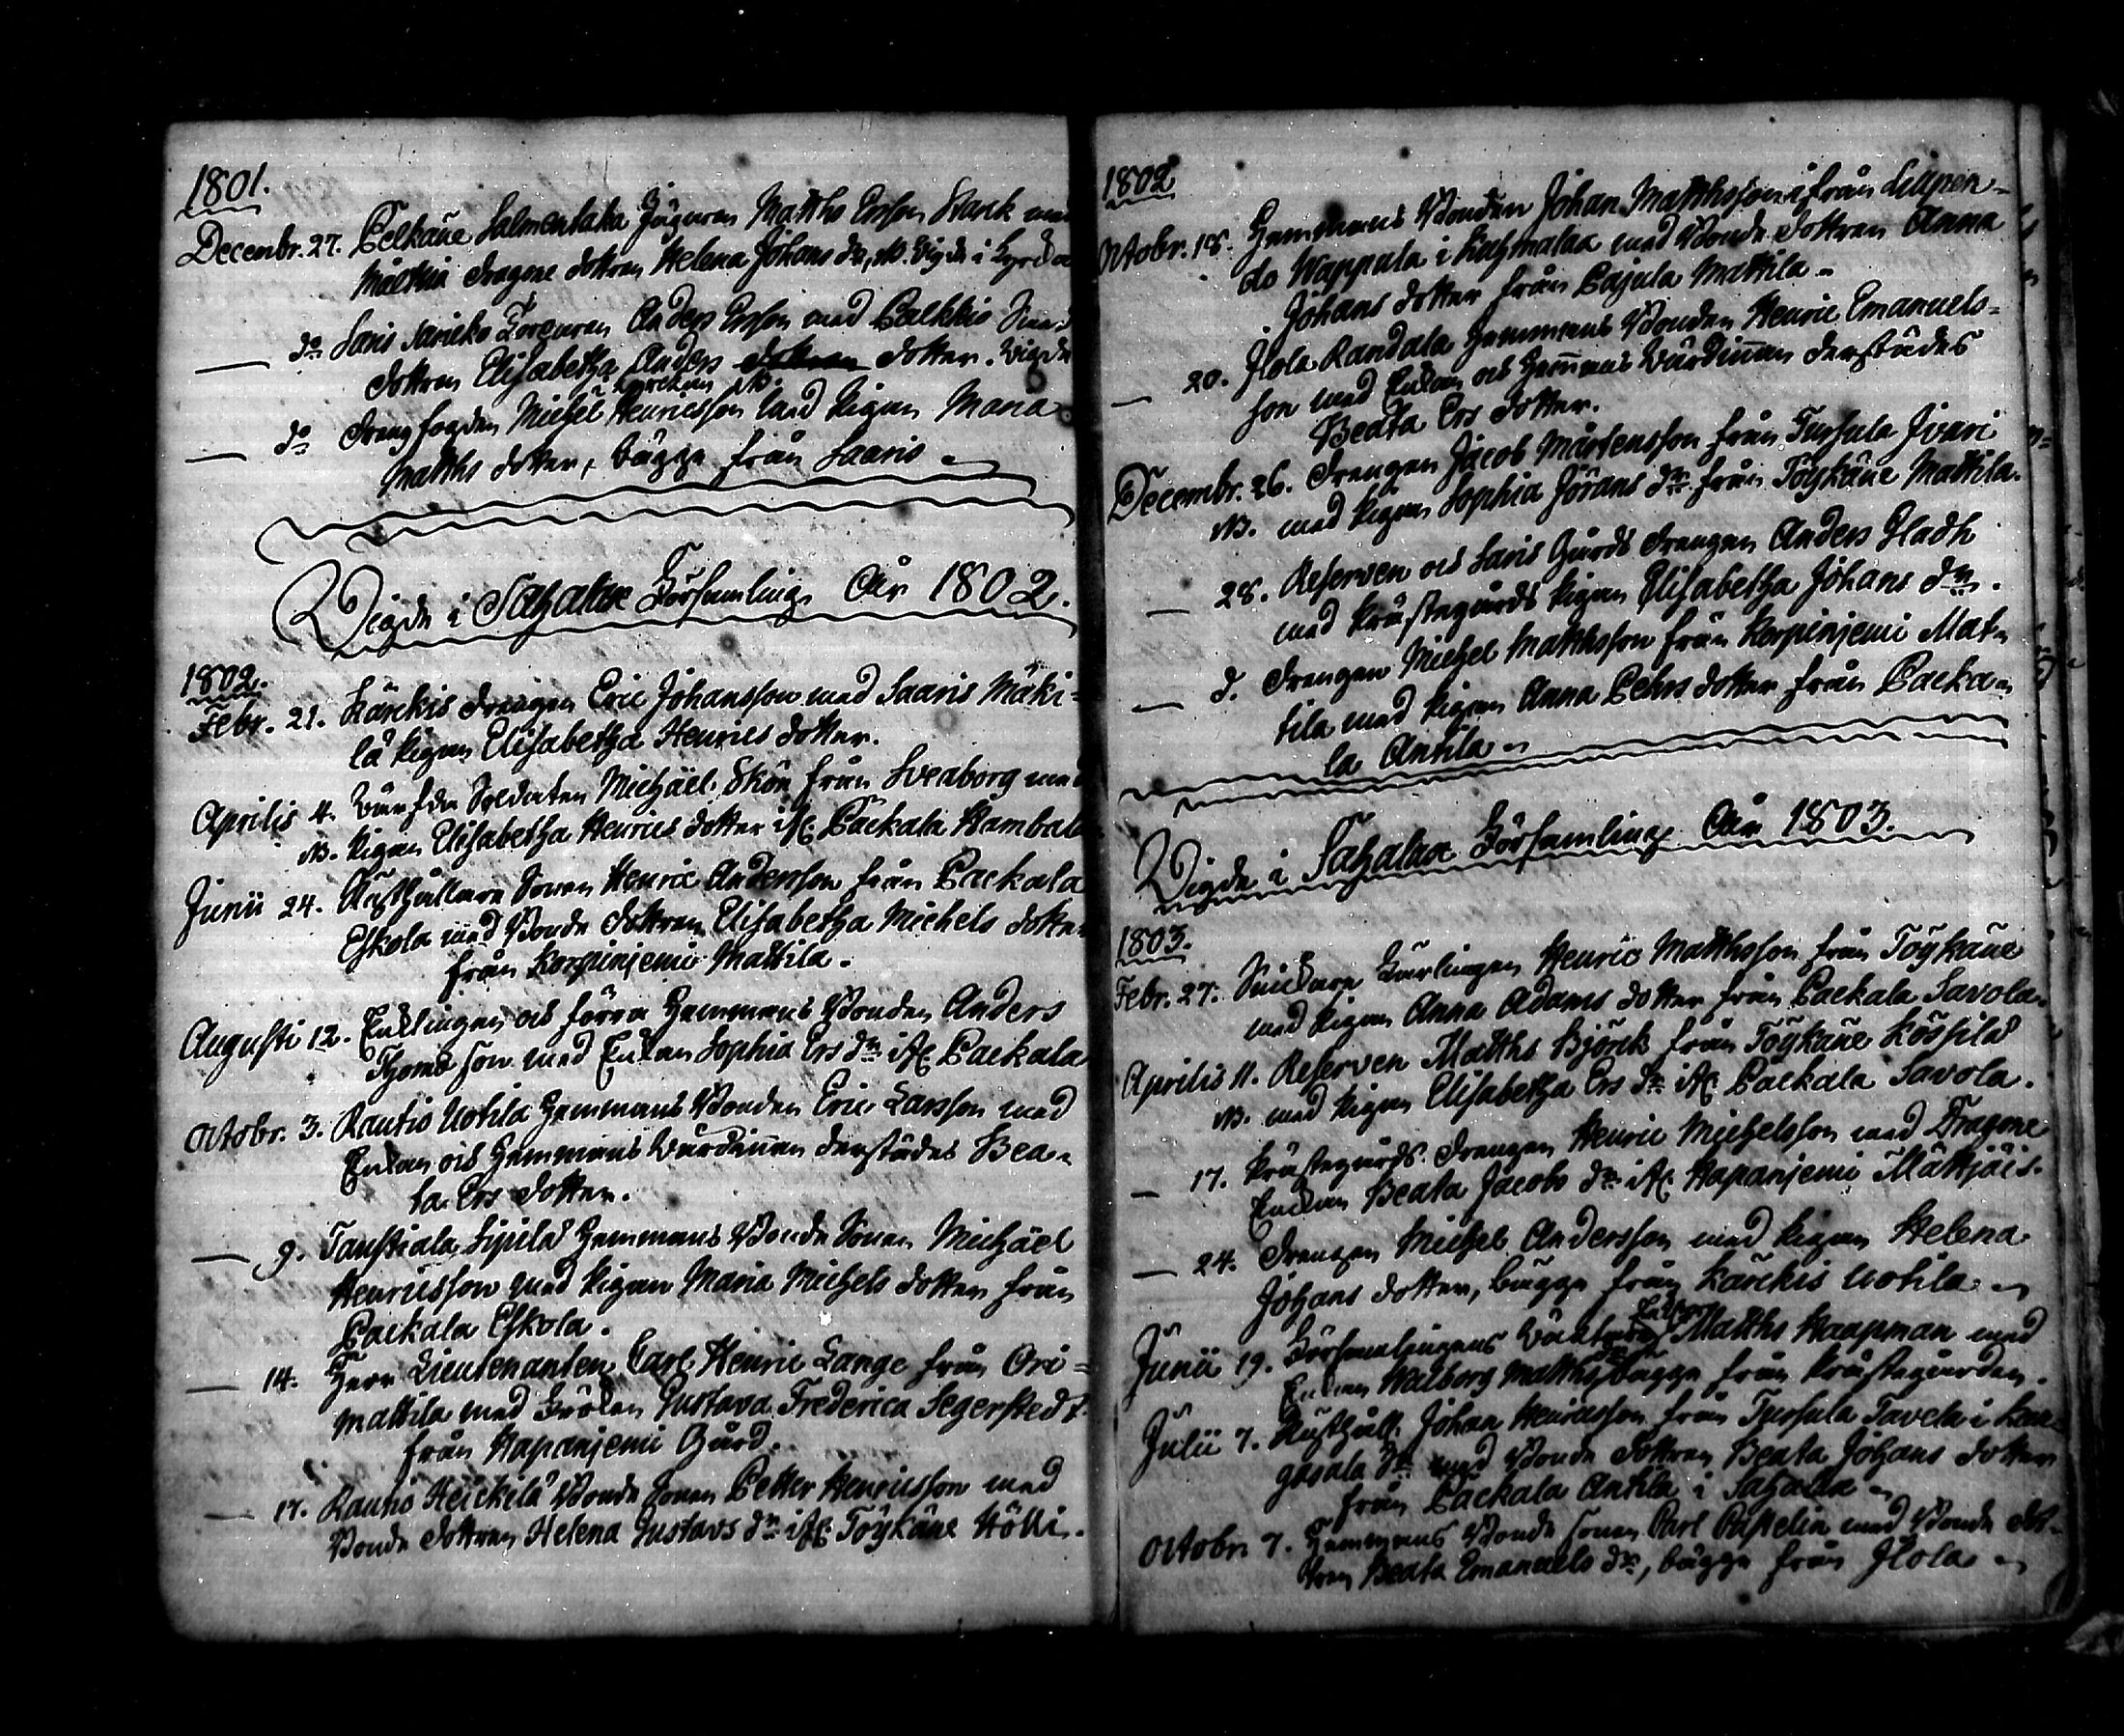 1801.
Decembr. 27. Pelkäne Salmentaka Jägaren Matths Ersson Starck med
Mälkiä Dragone dottren Helena Johans dr, NB. Vigde i Kyrckan
— do Saris Jarisko Torparen Anders Ersson med Palkkis
dottren Elisabetha Anders dottren dotter. Vigde
i Kyrckan NB.
— do Drengfogden Michel Henricsson med Pigan Maria
Matths dotter, bägge från Saaris
Vigde i Sahalax Församling År 1802.
1802.
Febr. 21. Kärckis Drengen Eric Johansson med Saaris Mäki-
lä Pigan Elisabetha Henrics dotter.
Aprilis 4. Värfda Soldaten Michäel Skön från Sveaborg med
NB. Pigan Elisabetha Henrics dotter ifr. Packala Stambala
Junii 24. Rusthållare Sonen Henric Andersson från Packala
Eskola med Bonde dottren Elisabetha Michels dotter
från Korpinjemi Mattila.
Augusti 12. Enklingen och förra Hemmans Bonden Anders
Thomæson med Enkan Sophia Ers dr ifr. Packala
Octobr. 3. Rautio Uotila Hemmans Bonden Eric Larsson med
Enkan och Hemmans Värdinnan derstädes Bea-
ta Ers dotter.
— 9. Taustiala Sipilä Hemmans Bonde Sonen Michäel
Henricsson med Pigan Maria Michels dotter från
Packala Eskola.
— 14. Herr Lieutenanten Carl Henric Lange från Ori-
mattila med Fröken Gustava Frederica Segerstedt
från Hapanjemi Gård.
— 17. Rautio Heickilä Bonde Sonen Petter Henricsson med
Bonde dottren Helena Gustavs dr ifr. Töykäne Hölli.
1802
Octobr. 18. Hemmans Bonden Johan Matthsson ifrån Liupen-
do Wappula i Kuhmalax med Bonde dottren Anna
Johans dotter från Pajula Mattila
— 20. Ilola Randala Hemmans Bonden Henric Emanuels-
son med Enkan och Hemmans Värdinnan derstädes
Beata Ers dotter.
Decembr. 26. Drengen Jacob Mårtensson från Tursula Jvari
NB. med Pigan Sophia Jörans dr från Töykäne Mattila.
— 28. Reserven och Saris Gårds Drengen Anders Gladh
med Prästegårds Pigan Elisabetha Johans dr.
— d. Drengen Michel Matthsson från Korpinjemi Mat-
tila med Pigan Anna Pehrs dotter från Packa-
la Antila
Vigde i Sahalax Församling År 1803.
1803.
Febr. 27. Snickare Lärlingen Henric Matthsson från Töykäne
med Pigan Anna Adams dotter från Packala Savola
Aprilis 11. Reserven Matths Björck från Töykäne Kössilä
NB. med Pigan Elisabetha Ers dr ifr. Packala Savola.
— 17. Prästegårds Drengen Henric Michelsson med Dragone
Enckan Beata Jacobs dr ifr. Hapanjemi Mälkjäis.
— 24. Drengen Michel Andersson med Pigan Helena
Johans dotter, bägge från Kärckis Uotila
Junii 19. Församlingens Väcktare Enkl. Matths Haapman med
Enkan Walborg Matths dr bägge från Prästegården.
Julii 7. Rusthåll. Johan Henricsson från Tursula Tavela i Kan-
gasala Sn med Bonde dottren Beata Johans dotter
från Packala Antila i Sahalax
Octobr. 7. Hemmans Bonde sonen Carl Castelin med Bonde dot-
tren Beata Emanuels dr, bägge från Ilola